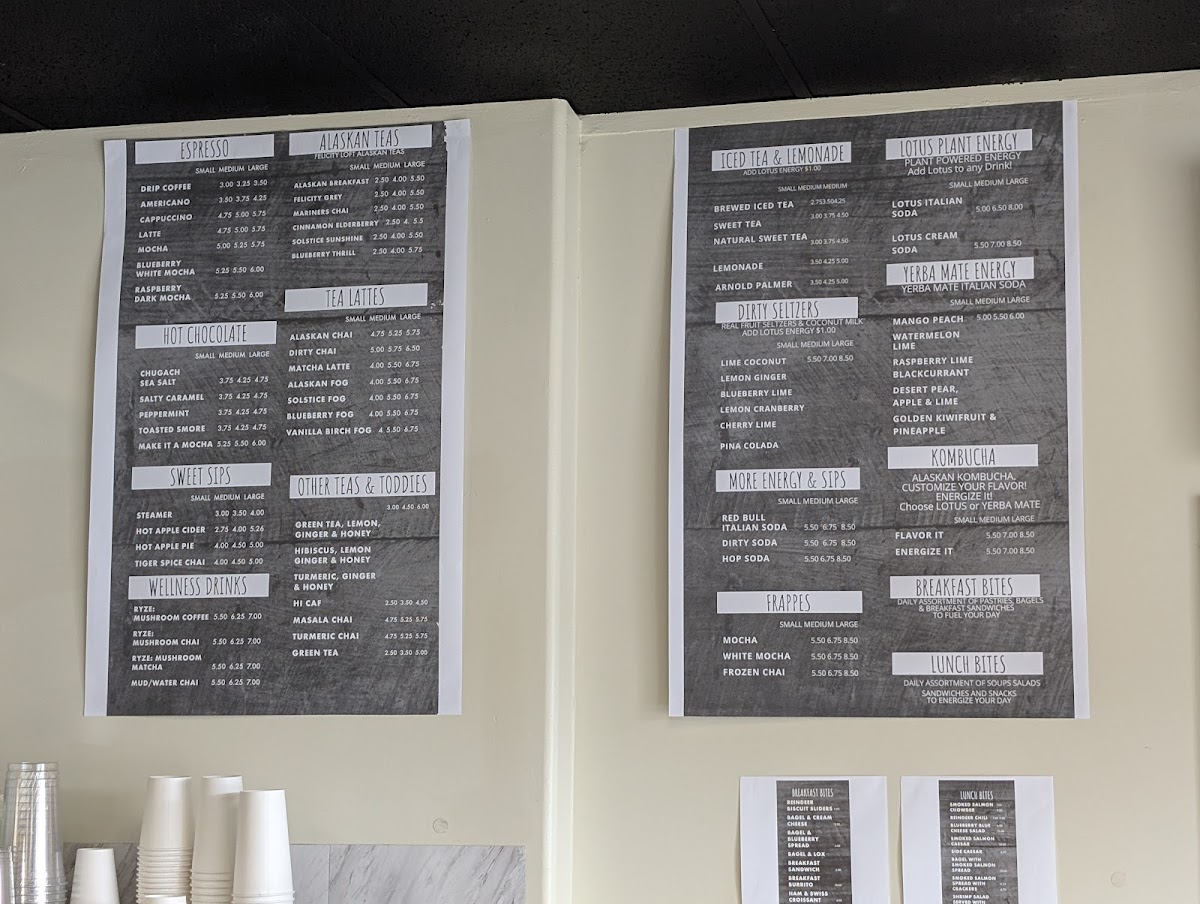 ESPRESSO
SMALL MEDIUM LARGE
DRIP COFFEE 3.00 3.25 3.50
AMERICANO 3.50 3.75 4.25
CAPPUCCINO 4.75 5.00 5.75
LATTE 4.75 5.00 5.75
MOCHA 5.00 5.25 5.75
BLUEBERRY
WHITE MOCHA 5.25 5.50 6.00
RASPBERRY
DARK MOCHA 5.25 5.50 6.00
HOT CHOCOLATE
SMALL MEDIUM LARGE
CHUGACH
SEA SALT 3.75 4.25 4.75
SALTY CARAMEL 3.75 4.25 4.75
PEPPERMINT 3.75 4.25 4.75
TOASTED SMORE 3.75 4.25 4.75
MAKE IT A MOCHA 5.25 5.50 6.00
SWEET SIPS
SMALL MEDIUM LARGE
STEAMER 3.00 3.50 4.00
HOT APPLE CIDER 2.75 4.00 5.26
HOT APPLE PIE 4.00 4.50 5.00
TIGER SPICE CHAI 4.00 4.50 5.00
WELLNESS DRINKS
RYZE:
MUSHROOM COFFEE 5.50 6.25 7.00
RYZE:
MUSHROOM CHAI 5.50 6.25 7.00
RYZE: MUSHROOM
MATCHA 5.50 6.25 7.00
MUD/WATER CHAI 5.50 6.25 7.00
ALASKAN TEAS
FELICITY LOFT ALASKAN TEAS
SMALL MEDIUM LARGE
ALASKAN BREAKFAST 2.50 4.00 5.50
FELICITY GREY 2.50 4.00 5.50
MARINERS CHAI 2.50 4.00 5.50
CINNAMON ELDERBERRY 2.50 4. 5.5
SOLSTICE SUNSHINE 2.50 4.00 5.50
BLUEBERRY THRILL 2.50 4.00 5.75
TEA LATTES
SMALL MEDIUM LARGE
ALASKAN CHAI 4.75 5.25 5.75
DIRTY CHAI 5.00 5.75 6.50
MATCHA LATTE 4.00 5.50 6.75
ALASKAN FOG 4.00 5.50 6.75
SOLSTICE FOG 4.00 5.50 6.75
BLUEBERRY FOG 4.00 5.50 6.75
VANILLA BIRCH FOG 4. 5.50 6.75
OTHER TEAS & TODDIES
3.00 4.50 6.00
GREEN TEA, LEMON,
GINGER & HONEY
HIBISCUS, LEMON
GINGER & HONEY
TURMERIC, GINGER
& HONEY
HI CAF 2.50 3.50 4.50
MASALA CHAI 4.75 5.25 5.75
TURMERIC CHAI 4.75 5.25 5.75
GREEN TEA 2.50 3.50 5.00
ICED TEA & LEMONADE
ADD LOTUS ENERGY $1.00
SMALL MEDIUM MEDIUM
BREWED ICED TEA 2.753.504.25
SWEET TEA 3.00 3.75 4.50
NATURAL SWEET TEA 3.00 3.75 4.50
LEMONADE 3.50 4.25 5.00
ARNOLD PALMER 3.50 4.25 5.00
DIRTY SELTZERS
REAL FRUIT SELTZERS & COCONUT MILK
ADD LOTUS ENERGY $1.00
SMALL MEDIUM LARGE
LIME COCONUT 5.50 7.00 8.50
LEMON GINGER
BLUEBERRY LIME
LEMON CRANBERRY
CHERRY LIME
PINA COLADA
MORE ENERGY & SIPS
SMALL MEDIUM LARGE
RED BULL
ITALIAN SODA 5.50 6.75 8.50
DIRTY SODA 5.50 6.75 8.50
HOP SODA 5.50 6.75 8.50
FRAPPES
SMALL MEDIUM LARGE
MOCHA 5.50 6.75 8.50
WHITE MOCHA 5.50 6.75 8.50
FROZEN CHAI 5.50 6.75 8.50
LOTUS PLANT ENERGY
PLANT POWERED ENERGY
Add Lotus to any Drink!
SMALL MEDIUM LARGE
LOTUS ITALIAN
SODA 5.00 6.50 8.00
LOTUS CREAM
SODA 5.50 7.00 8.50
YERBA MATE ENERGY
YERBA MATE ITALIAN SODA
SMALL MEDIUM LARGE
MANGO PEACH 5.00 5.50 6.00
WATERMELON
LIME
RASPBERRY LIME
BLACKCURRANT
DESERT PEAR,
APPLE & LIME
GOLDEN KIWIFRUIT &
PINEAPPLE
KOMBUCHA
ALASKAN KOMBUCHA.
CUSTOMIZE YOUR FLAVOR!
ENERGIZE It!
Choose LOTUS or YERBA MATE
SMALL MEDIUM LARGE
FLAVOR IT 5.50 7.00 8.50
ENERGIZE IT 5.50 7.00 8.50
BREAKFAST BITES
DAILY ASSORTMENT OF PASTRIES, BAGELS
& BREAKFAST SANDWICHES
TO FUEL YOUR DAY
LUNCH BITES
DAILY ASSORTMENT OF SOUPS SALADS
SANDWICHES AND SNACKS
TO ENERGIZE YOUR DAY
BREAKFAST BITES
REINDEER
BISCUIT SLIDERS
BAGEL & CREAM
CHEESE
BAGEL &
BLUEBERRY
SPREAD
BAGEL & LOX
BREAKFAST
SANDWICH
BREAKFAST
BURRITO
HAM & SWISS
CROISSANT
LUNCH BITES
SMOKED SALMON
CHOWDER
REINDEER CHILI
BLUEBERRY BLUE
CHEESE SALAD
SMOKED SALMON
CAESAR
SIDE CAESAR
BAGEL WITH
SMOKED SALMON
SPREAD
SMOKED SALMON
SPREAD WITH
CRACKERS
SHRIMP SALAD
SERVED WITH